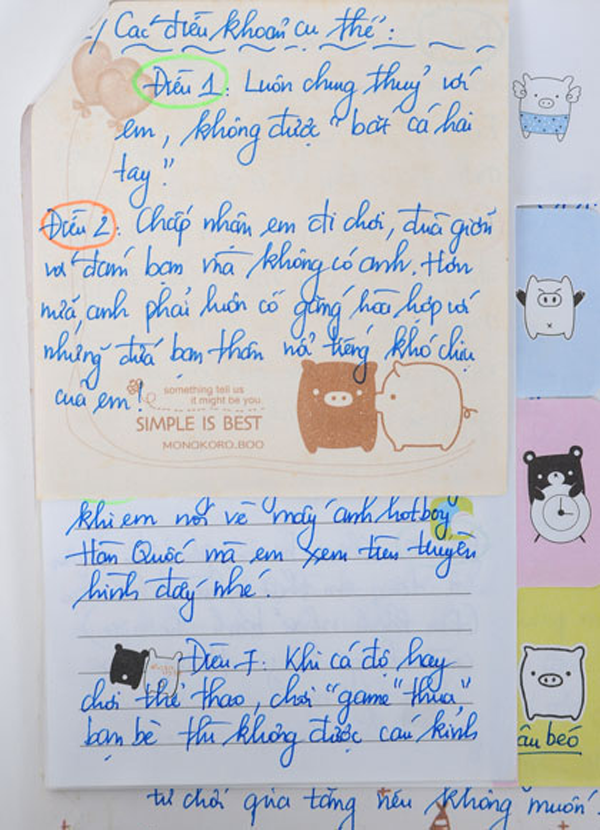 -/ Các điều khoản cụ thể:
Điều 1: Luôn chung thuỷ với
em, không được "bắt cá hai
tay".
Điều 2: Chấp nhận em đi chơi, đùa giỡn
với đám bạn mà không có anh. Hơn
nữa, anh phải luôn cố gắng hòa hợp với
những đứa bạn thân nổi tiếng khó chịu
của em!
something tell us
it might be you
SIMPLE IS BEST
MONOKORO.BOO
khi em nói về mấy anh hotboy
Hàn Quốc mà em xem trên truyền
hình đấy nhé.
Điều 7: Khi cá độ hay
chơi thể thao, chơi "game" thua,
bạn bè thì không được cau kỉnh
béo
từ chối quà tặng nếu không muốn.